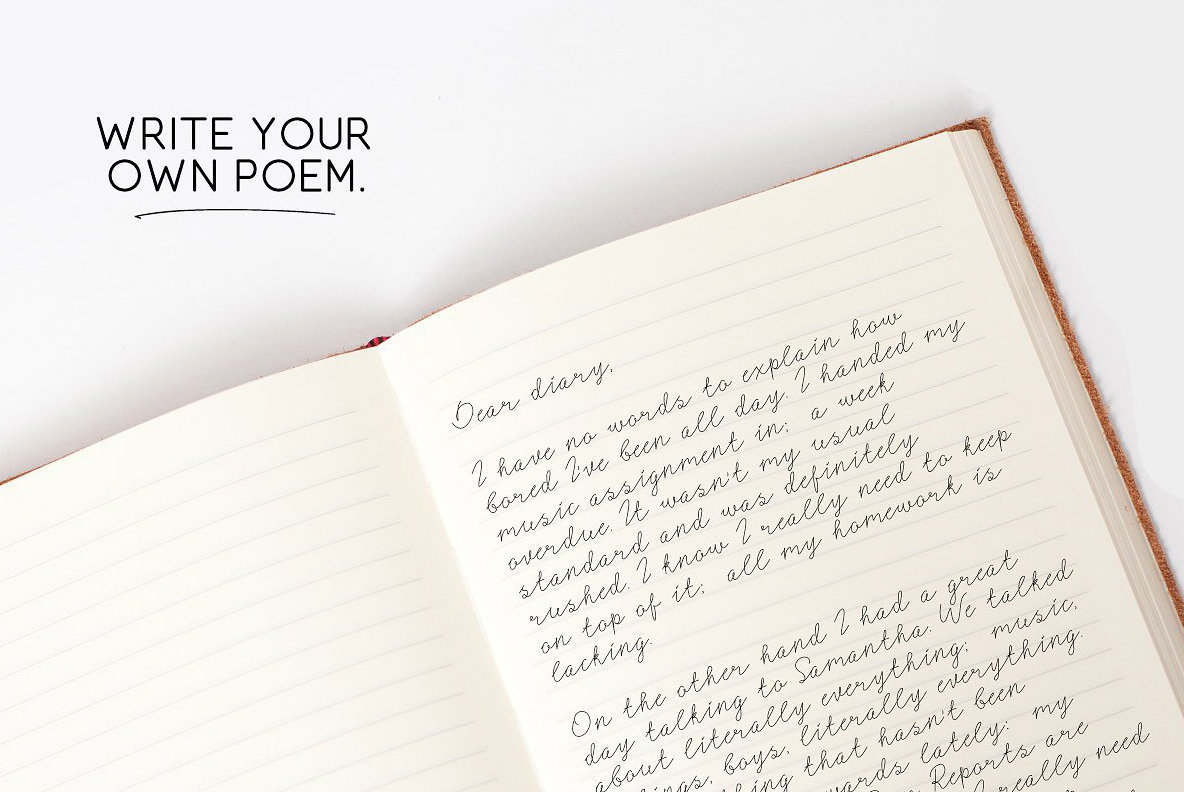 WRITE YOUR
OWN POEM.
Dear diary,
I have no words to explain how
bored I've been all day. I handed my
music assignment in; a week
overdue. It wasn't my usual
standard and was definitely
rushed. I know I really need to keep
on top of it; all my homework is
lacking.
On the other hand I had a great
day talking to Samantha. We talked
about literally everything; music,
boys, literally everything.
that hasn't been
lately; my
Reports are
really need